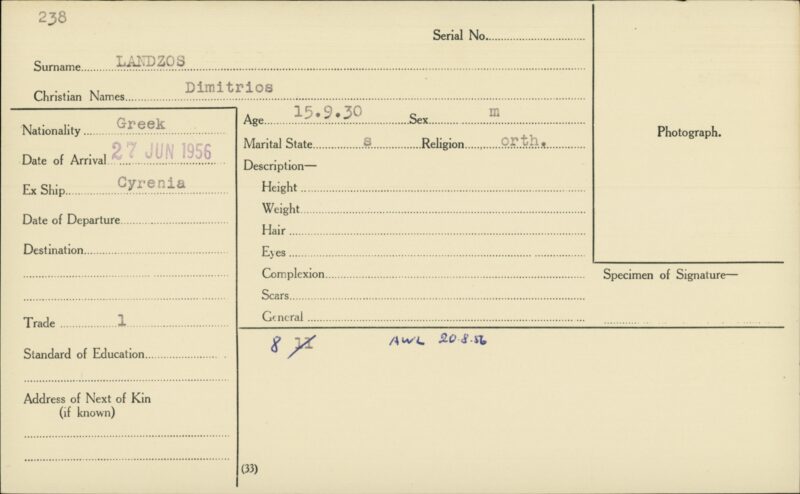 238
Serial No.
Surname LANDZOS
Christian Names Dimitrios
Nationality Greek
Date of Arrival 27 JUN 1956
Ex Ship Cyrenia
Date of Departure
Destination
Trade 1
Standard of Education
Address of Next of Kin
(if known)
Age 15.9.30 Sex m
Marital State s Religion orth.
Description—
Height
Weight
Hair
Eyes
Complexion
Scars
General
8 11 AWL 20.8.56
(33)
Photograph.
Specimen of Signature—